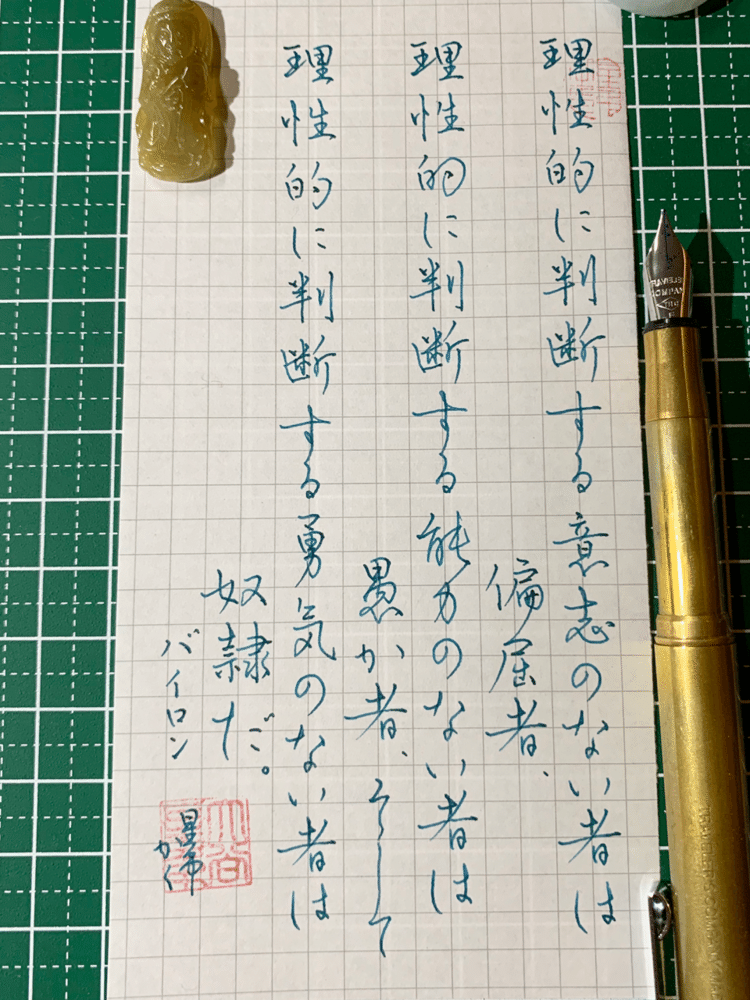 理性的に判断する意志のない者は
偏屈者、
理性的に判断する能力のない者は
愚か者、そして
理性的に判断する勇気のない者は
奴隷だ。
バイロン